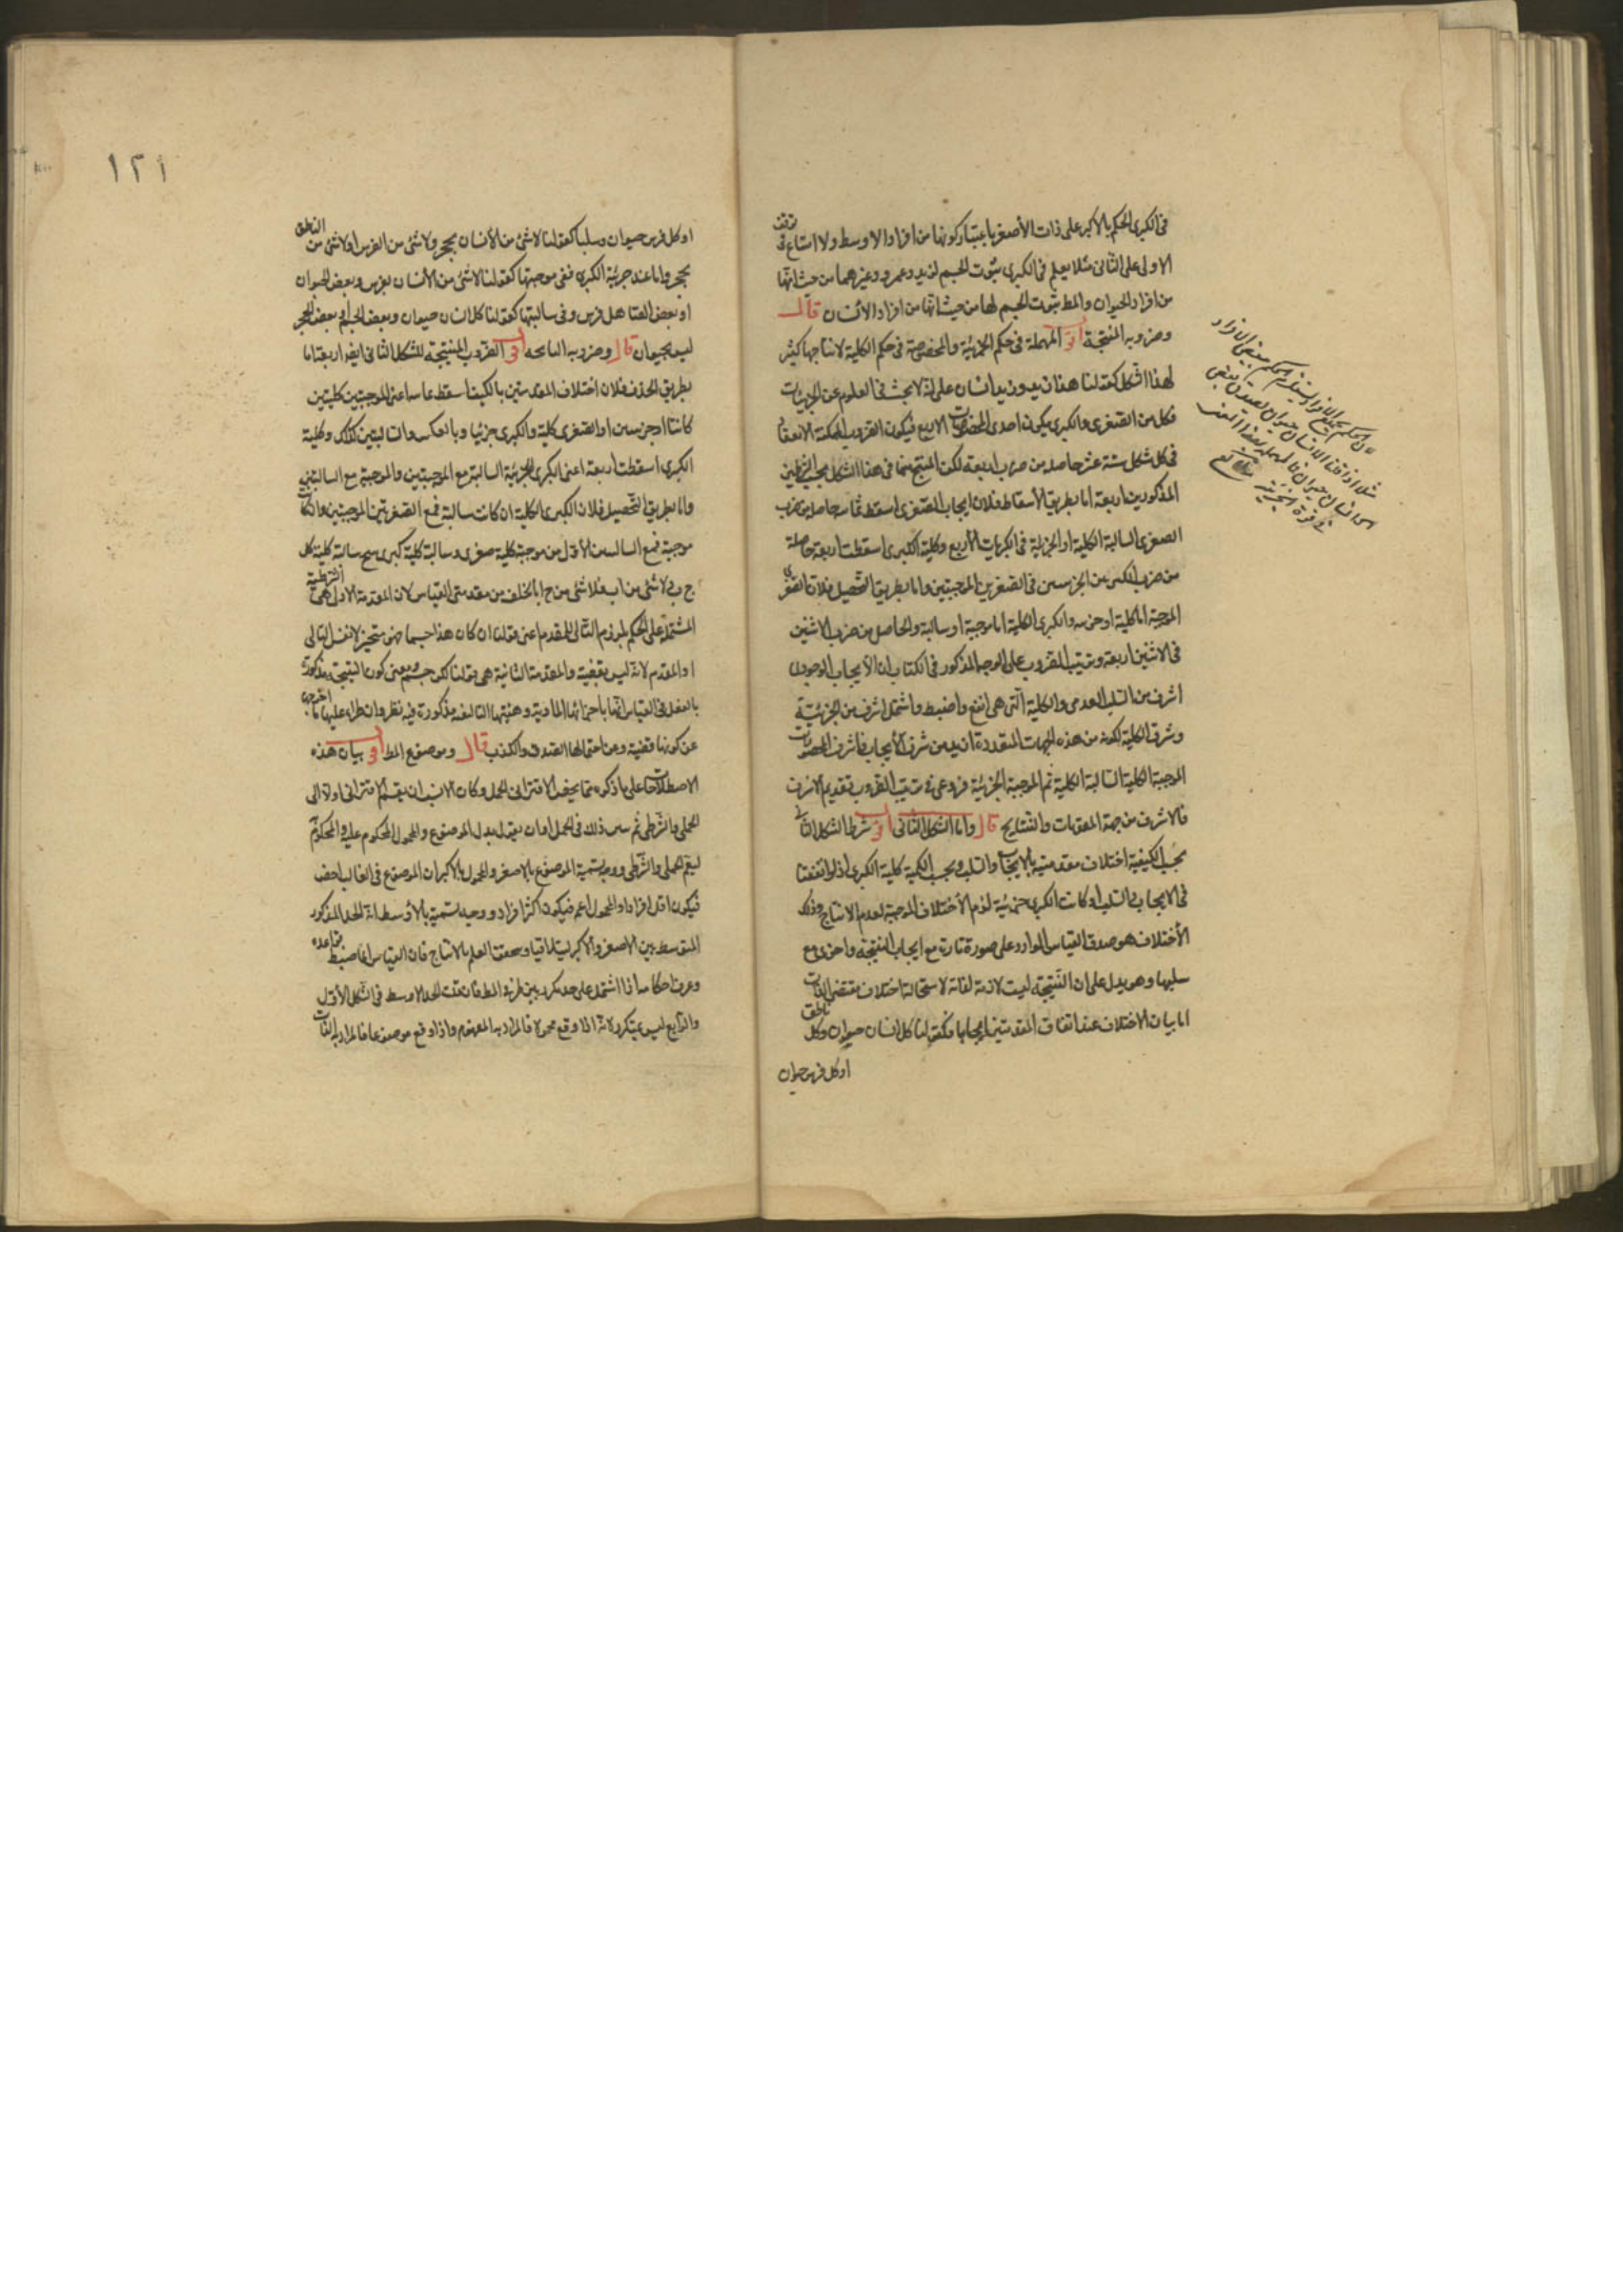 فى الكبرى الحكم بالاكبر على ذات الأصغر باعتبار كونها من افراد الاوسط ولا امتناع فى توقف
الاولى على الثانى مثلا يعلم فى الكبرى ثبوت الجسم لزيد وعمرو وغيرهما من حيث انها
من افراد الحيوان والمط ثبوت الجسم لها من حيث انها من افراد الانسان قال
وضروبه المنتجة اقول المهملة فى حكم الجزئية والمخصوصة فى حكم الكلية لانتاجها كثير
لهذا الشكل كقولنا هذا زيد وزيد انسان على انه لا يبحث فى العلوم عن الجزئيات
فكل من الصغرى والكبرى يكون احدى المحصورات الاربع فيكون الضروب الممكنة الانعقاد
فى كل شكل ستة عشر حاصله من ضرب اربعة لكن المنتج منها فى هذا الشكل بحسب الشرطين
المذكورين اربعة اما بطريق الأسقاط فلان ايجاب الصغرى اسقط ثمانية حاصله من ضرب
الصغرى السالبة الكلية او الجزئية فى الكبريات الأربع وكلية الكبرى اسقطت اربعة حاصلة
من ضرب الكبريين الجزئيتين فى الصغريين الموجبتين واما بطريق التحصيل فلان الصغرى
الموجبة اما كلية او جزئية والكبرى الكلية اما موجبة او سالبة والحاصل من ضرب الاثنين
فى الاثنين اربعة وترتيب الضروب على الوجه المذكور فى الكتاب لان الايجاب الوجودى
اشرف من السلب العدمى والكلية التى هى انفع واضبط واشمل اشرف من الجزئية
وشرف الكلية لكونه من هذه الجهات المتعددة ازيد من شرف الأيجاب فاشرف المحصورات
الموجبة الكلية السالبة الكلية ثم الموجبة الجزئية فروعى فى ترتيب الضروب تقديم الاشرف
فالاشرف من جهة المقدمات والنتايج قال واما الشكل الثانى اقول شرط الشكل الثانى
بحسب الكيفية اختلاف مقدمتيه بالايجاب والسلب وبحسب الكمية كلية الكبرى اذ لو اتفقتا
فى الايجاب والسلب او كانت الكبرى جزئية لزم الأختلاف الموجبة لعدم الانتاج وذلك
الأختلاف هو صدق القياس الوارد على صورة تارة مع ايجاب النتيجة واخرى مع
سلبها وهو يدل على ان النتيجة ليست لازمة لذاته لاستحالة اختلاف مقتضى الذات
اما بيان الاختلاف عند اتفاق المقدمتين ايجابا فكقولنا كل انسان حيوان وكل ناطق
او كل فرس حيوان
لان الحكم بجميع الافراد يستلزم الحكم ببعض الافراد
او كل فرس حيوان وسلبا كقولنا لاشئ من الأنسان بحجر ولا شئ من الفرس او لا شئ من الناطق
بحجر واما عند جزئية الكبرى ففى موجبتها كقولنا لاشئ من الأنسان بفرس وبعض الحيوان
او بعض الصاهل فرس وفى سالبتها كقولنا كل انسان حيوان وبعض الجسم او بعض الحجر
ليس بحيوان قال وضروبه الناتجة اقول الضروب المنتجة للشكل الثانى ايضا اربعة اما
بطريق الحذف فلان اختلاف المقدمتين بالكيف اسقط ثمانية اعنى الموجبتين كليتين
كانتا او جزئيتين او الصغرى كلية والكبرى جزئيا وبالعكس والسالبتين كذلك وكلية
الكبرى اسقطت اربعة اعنى الكبرى الجزئية السالبة مع الموجبتين والموجبة مع السالبتين
واما بطريق التحصيل فلان الكبرى الكلية ان كانت سالبة فمع الصغريتين الموجبتين وان كانت
موجبة فمع السالبتين الأول من موجبة كلية صغرى وسالبة كلية كبرى ينتج سالبة كلية كل
ج ب ولاشئ من اب فلاشئ من ج ا بالخلف من مقدمتى القياس لان المقدمة الاولى هى الشرطية
المشتملة على الحكم بلزوم التالى للمقدم اعنى قولنا ان كان هذا جسما فهو متحيز لا نفس التالى
او المقدم لانه ليس بقضية والمقدمة الثانية هى قولنا لكنه جسم ومعنى كون النتيجة مذكورة
بالفعل فى القياس انها باجزائها المادية وهيئتها التاليفية مذكورة فيه نظر وان طراء عليها ما اخرجها
عن كونها قضية وعن احتمالها الصدق والكذب قال وموضوع المط اقول بيان هذه
الاصطلاحات على ما ذكره مما يخص الاقترانى الحملى وكان الانسب ان يقسم الاقترانى اولا الى
الحملى والشرطى ثم يبين ذلك فى الحمل او ان يقول بدل الموضوع والمحمول المحكوم عليه والمحكوم به
ليعم الحملى والشرطى ووجه تسمية الموضوع بالاصغر والمحمول بالاكبر ان الموضوع فى الغالب اخص
فيكون اقل افرادا والمحمول اعم فيكون اكثر افراد ووجه تسميته بالأوسط انه الحد المذكور
المتوسط بين الاصغر والاكبر
وعرف احكامه اذا اشتمل على حد مكرر بين طرفى المط فان قلت الحد الاوسط فى الشكل الأول
والرابع ليس بمتكرر لانه اذا وقع محمولا فالمراد به المفهوم واذا وقع موضوعا فالمراد به الذات
١٢١